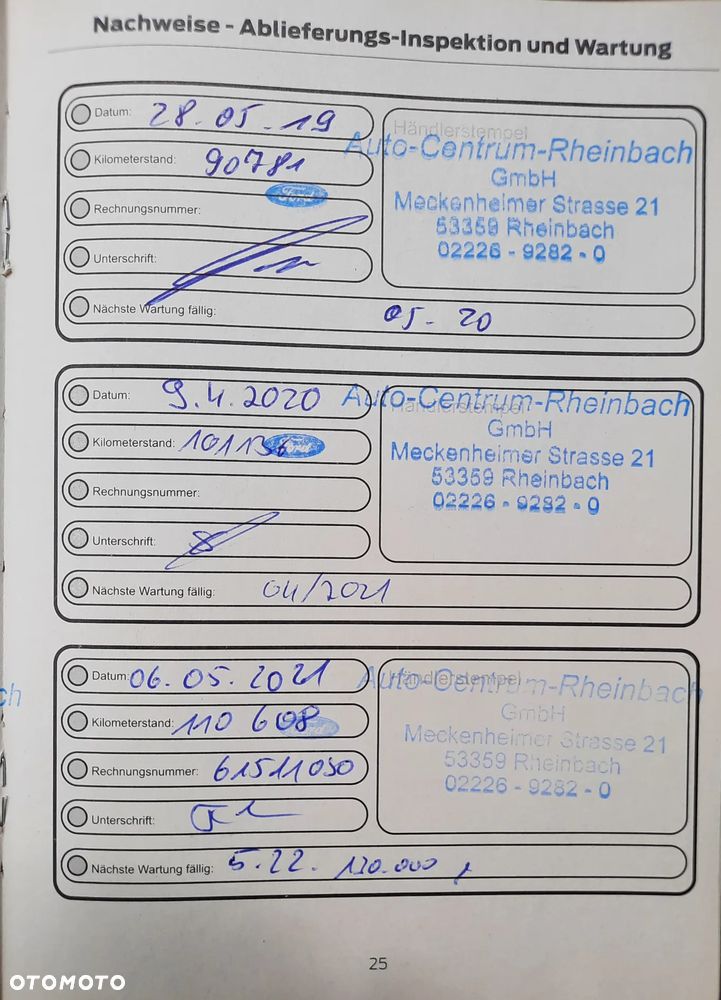 Nachweise - Ablieferungs-Inspektion und Wartung
Datum: 28.05.19
Händlerstempel
Auto-Centrum-Rheinbach
GmbH
Meckenheimer Strasse 21
53359 Rheinbach
02226 - 9282 - 0
Kilometerstand: 90781
Ford
Rechnungsnummer:
Unterschrift:
Nächste Wartung fällig: 05-20
Datum: 9.4.2020
Händlerstempel
Auto-Centrum-Rheinbach
GmbH
Meckenheimer Strasse 21
53359 Rheinbach
02226 - 9282 - 0
Kilometerstand: 101136
Ford
Rechnungsnummer:
Unterschrift:
Nächste Wartung fällig: 04/2021
Datum: 06.05.2021
Händlerstempel
Auto-Centrum-Rheinbach
GmbH
Meckenheimer Strasse 21
53359 Rheinbach
02226 - 9282 - 0
Kilometerstand: 110 608
Rechnungsnummer: 61511050
Unterschrift:
Nächste Wartung fällig: 5.22. 130.000
ch
25
OTOMOTO